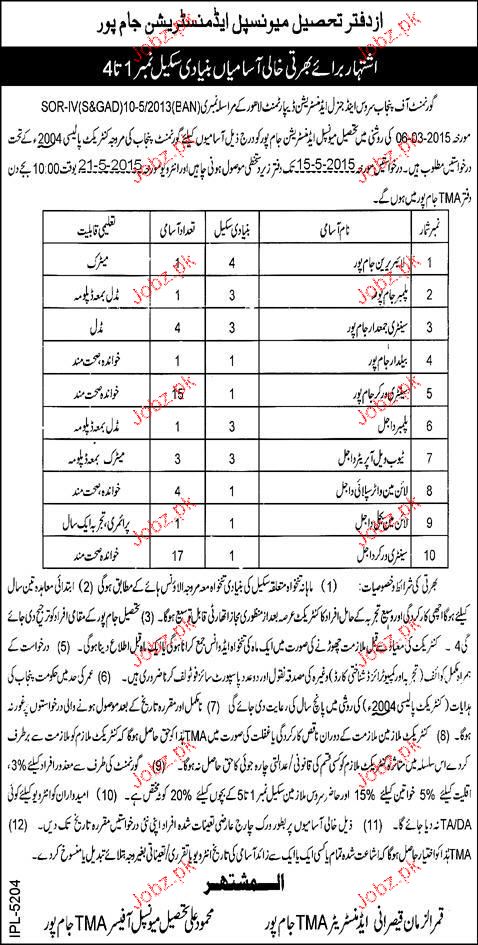 از دفتر تحصیل میونسپل ایڈمنسٹریشن جام پور
اشتہار برائے بھرتی خالی آسامیاں بنیادی سکیل نمبر 1 تا 4
گورنمنٹ آف پنجاب سروس اینڈ جنرل ایڈمنسٹریشن ڈیپارٹمنٹ لاہور کے مراسلہ نمبری SOR-IV(S&GAD)10-5/2013(EAN)
مورخہ 06-03-2015 کی روشنی میں تحصیل میونسپل ایڈمنسٹریشن جام پور کو درج ذیل آسامیوں کیلئے گورنمنٹ پنجاب کی مروجہ کنٹریکٹ پالیسی 2004ء کے تحت
درخواستیں مطلوب ہیں۔ درخواستیں مورخہ 15-5-2015 تک دفتر زیر دستخطی موصول ہونی چاہیں اور انٹرویو مورخہ 21-5-2015 بوقت 10:00 بجے دن
دفتر TMA جام پور میں ہوں گے۔
نمبر شمار نام آسامی بنیادی سکیل تعداد آسامی تعلیمی قابلیت
1 لائبریرین جام پور 4 1 میٹرک
2 پلمبر جام پور 3 1 مڈل بمعہ ڈپلومہ
3 سینٹری جمعدار جام پور 3 4 مڈل
4 بیلدار جام پور 1 1 خواندہ، صحت مند
5 سینٹری ورکر جام پور 1 15 خواندہ صحت مند
6 پلمبر داجل 3 1 مڈل بمعہ ڈپلومہ
7 ٹیوب ویل آپریٹر داجل 3 3 میٹرک بمعہ ڈپلومہ
8 لائن مین واٹر سپلائی داجل 1 4 خواندہ، صحت مند
9 لائن مین بجلی داجل 1 1 پرائمری، تجربہ ایک سال
10 سینٹری ورکر داجل 1 17 خواندہ صحت مند
بھرتی کی شرائط و خصوصیات: (1) ماہانہ تنخواہ متعلقہ سکیل کی بنیادی تنخواہ معہ مروجہ الاؤنس ہائے کے مطابق ہوگی (2) ابتدائی معاہدہ تین سال
کیلئے ہوگا اچھی کارکردگی اور وسیع تجربہ کے حامل افراد کا کنٹریکٹ عرصہ بعد از منظوری مجاز اتھارٹی قابل توسیع ہوگا۔ (3) تحصیل جام پور کے مقامی افراد کو ترجیح دی جائے
گی 4۔ کنٹریکٹ کی معیاد سے قبل ملازمت چھوڑنے کی صورت میں ایک ماہ کی تنخواہ ایڈوانس جمع کرانا ہوگی یا ایک ماہ قبل اطلاع دینا ہوگی۔ (5) درخواست کے
ہمراہ مکمل کوائف (تجربہ اور کمپیوٹرائزڈ شناختی کارڈ) وغیرہ کی مصدقہ نقول اور دو عدد پاسپورٹ سائز فوٹو لف کرنا ضروری ہیں۔ (6) عمر کی حد میں حکومت پنجاب کی
ہدایات (کنٹریکٹ پالیسی 2004ء) کی روشنی میں پانچ سال کی رعایت دی جائے گی (7) نامکمل اور مقررہ تاریخ کے بعد موصول ہونے والی درخواستوں پر غور نہ
ہوگا۔ (8) کنٹریکٹ ملازمین ملازمت کے دوران ناقص کارکردگی یا غفلت کی صورت میں TMA ہذا کو حق حاصل ہوگا کہ کنٹریکٹ ملازم کو ملازمت سے برطرف
کر دے اس سلسلہ میں متاثرہ کنٹریکٹ ملازم کو کسی قسم کی قانونی/عدالتی چارہ جوئی کا حق حاصل نہ ہوگا۔ (9) گورنمنٹ کی طرف سے معذور افراد کیلئے 3%،
اقلیت کیلئے 5% خواتین کیلئے 15% اور حاضر سروس ملازمین سکیل نمبر 1 تا 5 کے بچوں کیلئے 20% کوٹہ مختص ہے۔ (10) امیدواران کو انٹرویو کیلئے کوئی
TA/DA نہ دیا جائے گا۔ (11) ذیل خالی آسامیوں پر بطور ورک چارج عارضی تعینات شدہ افراد اپنی نئی درخواستیں مقررہ تاریخ تک دیں۔ (12)
TMA ہذا کو اختیار حاصل ہوگا کہ اشاعت شدہ تمام یا کسی ایک یا ایک سے زائد آسامی کی تاریخ انٹرویو یا تقرری/تعیناتی بغیر وجہ بتلائے تبدیل یا منسوخ کر دے۔
المشتہر
قمر الزمان قیصرانی ایڈمنسٹریٹر TMA جام پور
محمود علی تحصیل میونسپل آفیسر TMA جام پور
IPL-5204
Jobz.pk